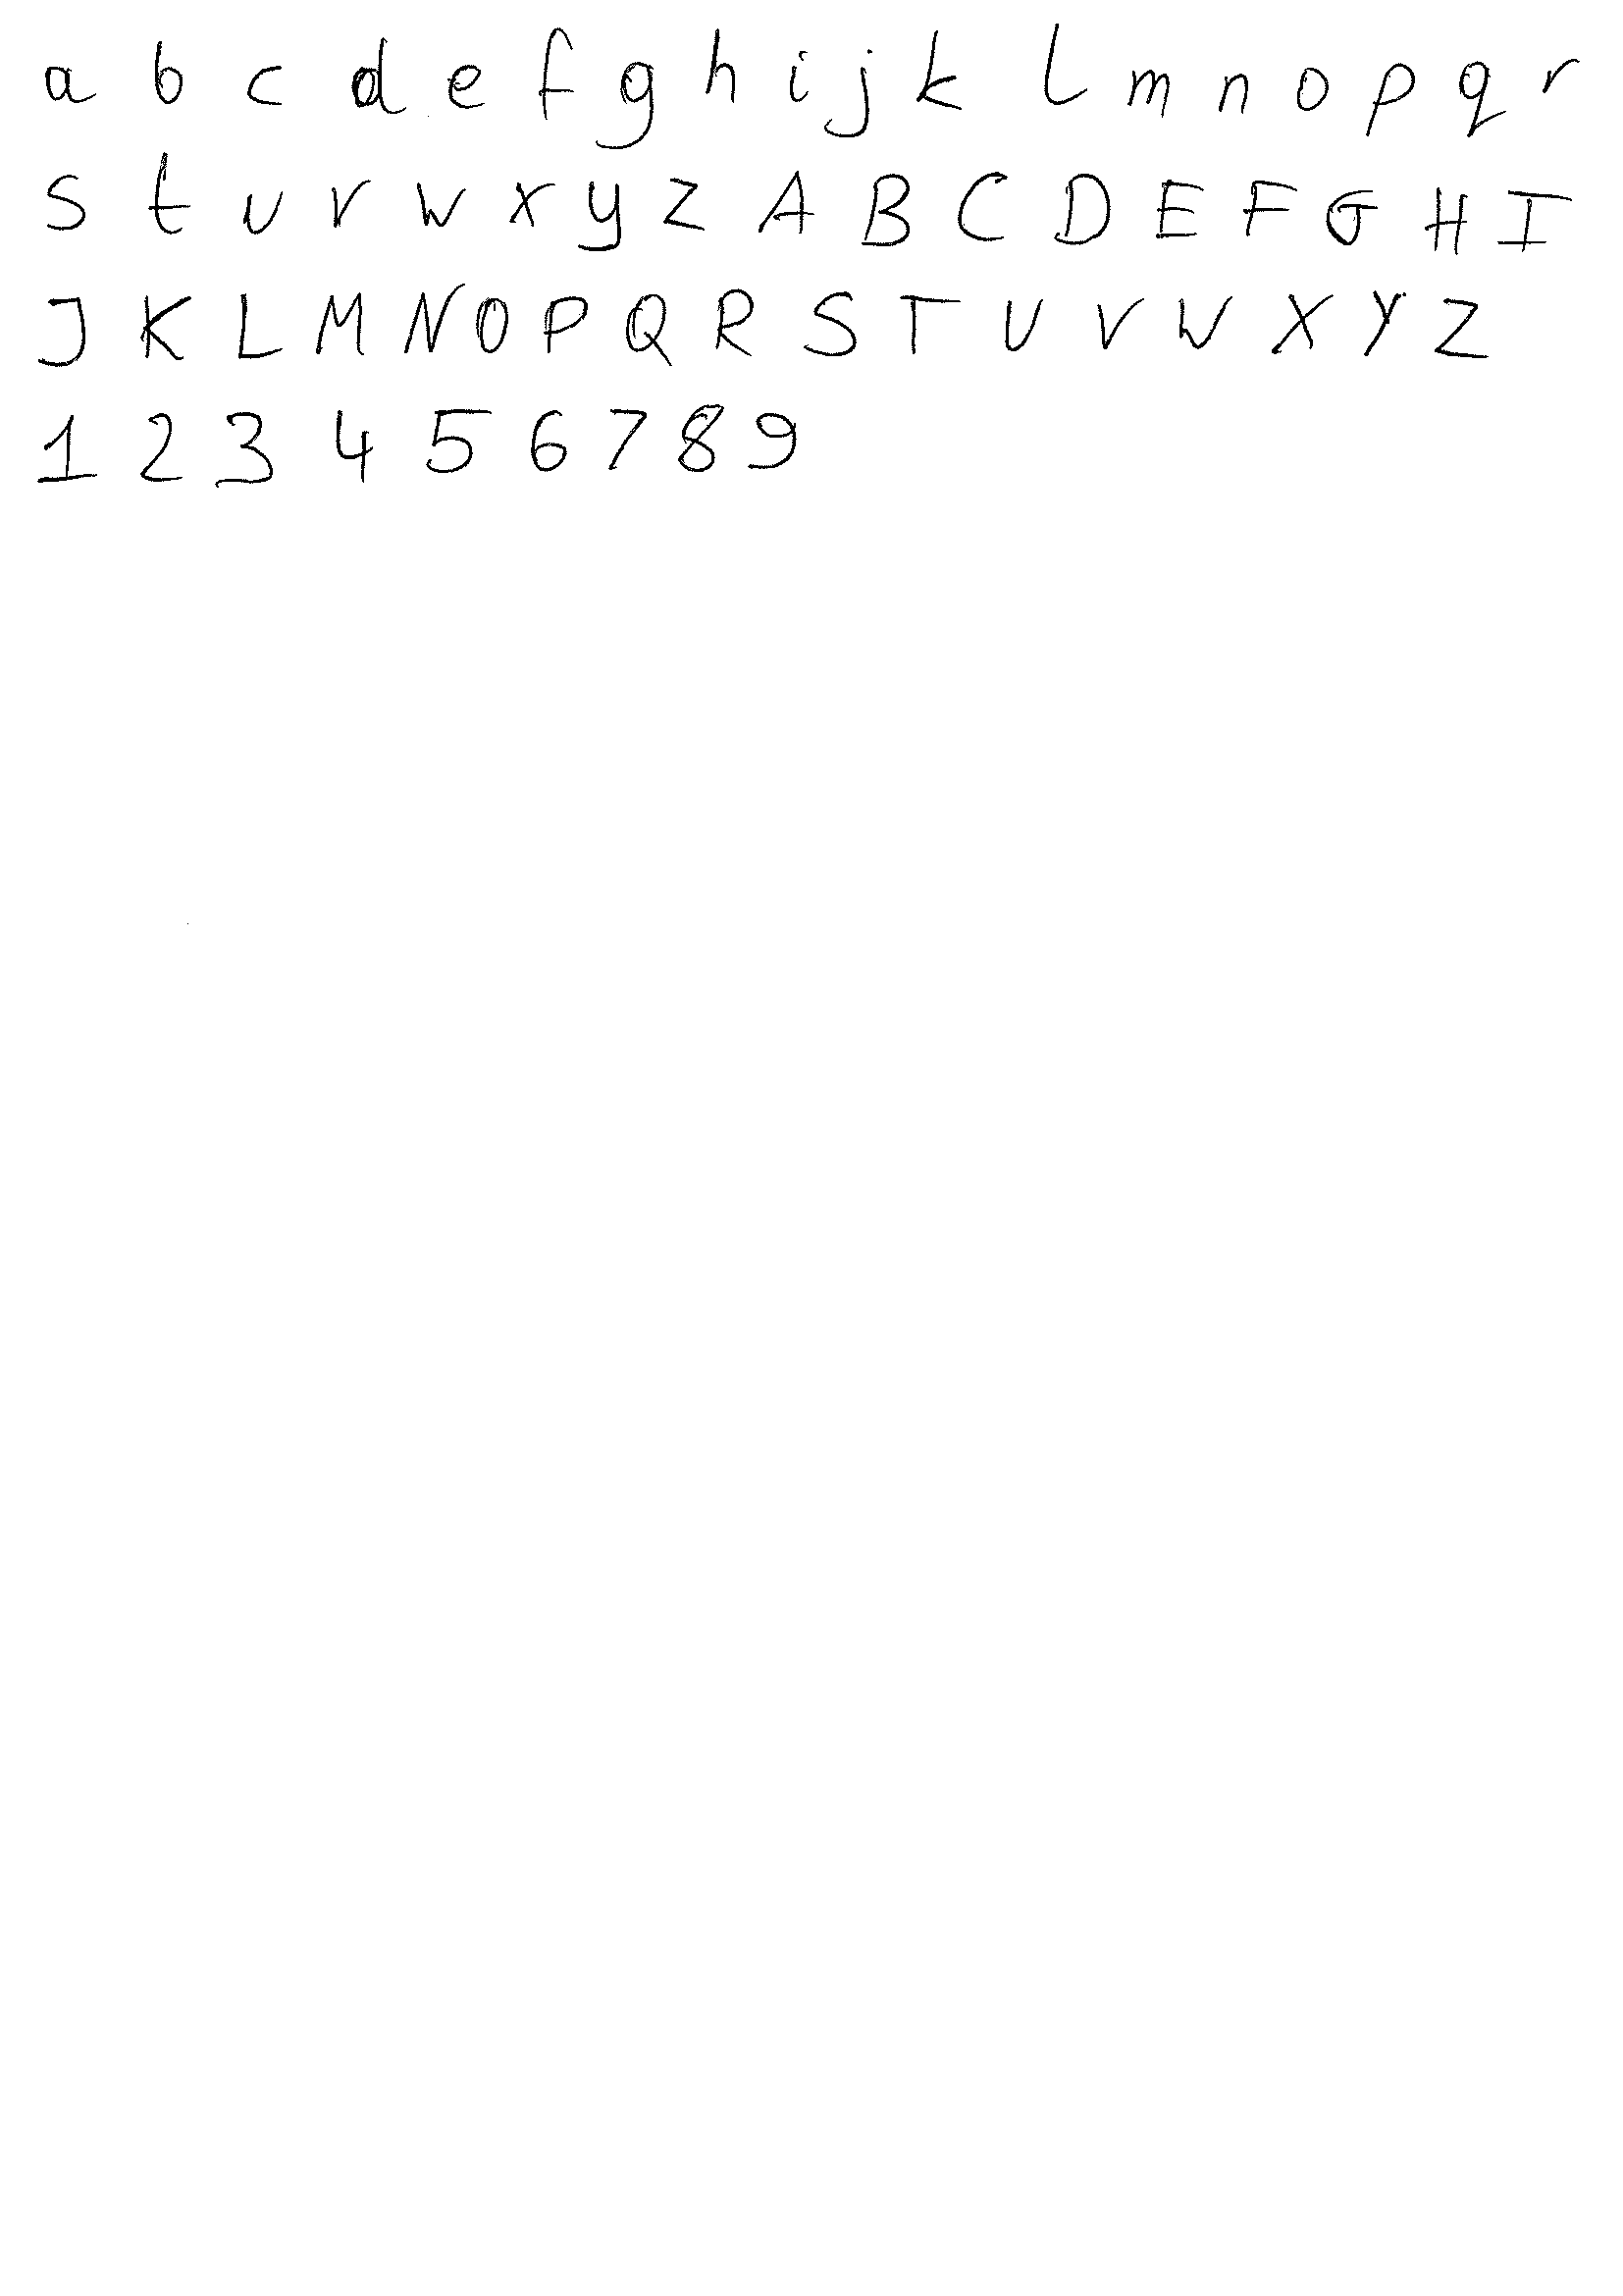 a b c d e f g h i j k l m n o p q r
s t u v w x y z A B C D E F G H I
J K L M N O P Q R S T U V W X Y Z
1 2 3 4 5 6 7 8 9